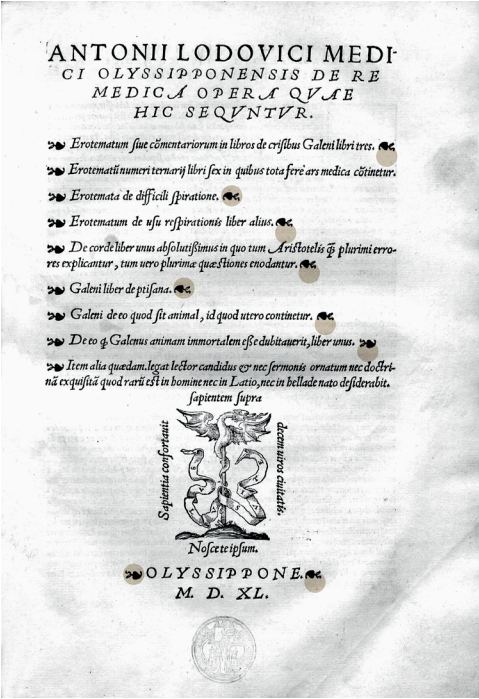 ANTONII LODOVICI MEDI-
CI OLYSSIPPONENSIS DE RE
MEDICA OPERA QVAE
HIC SEQVNTVR.
Erotematum siue cõmentariorum in libros de crisibus Galeni libri tres.
Erotematũ numeri ternarij libri sex in quibus tota ferè ars medica cõtinetur.
Erotemata de difficili spiratione.
Erotematum de usu respirationis liber alius.
De corde liber unus absolutißimus in quo tum Aristotelis q̃ plurimi erro-
res explicantur, tum uero plurimæ quæstiones enodantur.
Galeni liber de ptisana.
Galeni de eo quod sit animal, id quod utero continetur.
De eo q̃ Galenus animam immortalem eße dubitauerit, liber unus.
Item alia quædam. legat lector candidus & nec sermonis ornatum nec doctri-
nã exquisitã quod rarũ est in homine nec in Latio, nec in hellade nato desiderabit.
sapientem supra
decem uiros ciuitatis.
Sapientia confortauit
Nosce te ipsum.
OLYSSIPPONE.
M. D. XL.